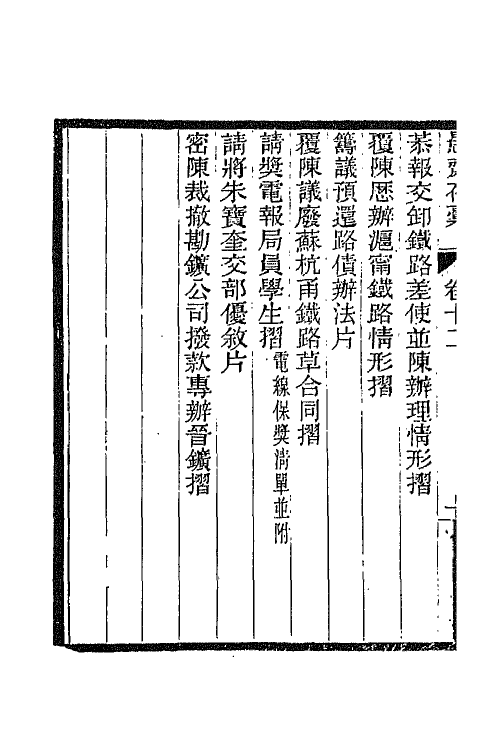 愚齋存稾 卷十二
恭報交卸鐵路差使並陳辦理情形摺
覆陳歷辦滬甯鐵路情形摺
籌議預還路債辦法片
覆陳議廢蘇杭甬鐵路草合同摺
請奬電報局員學生摺 電線保奬淸單並附
請將朱寶奎交部優敘片
密陳裁撤勘鑛公司撥款專辦晉鑛摺